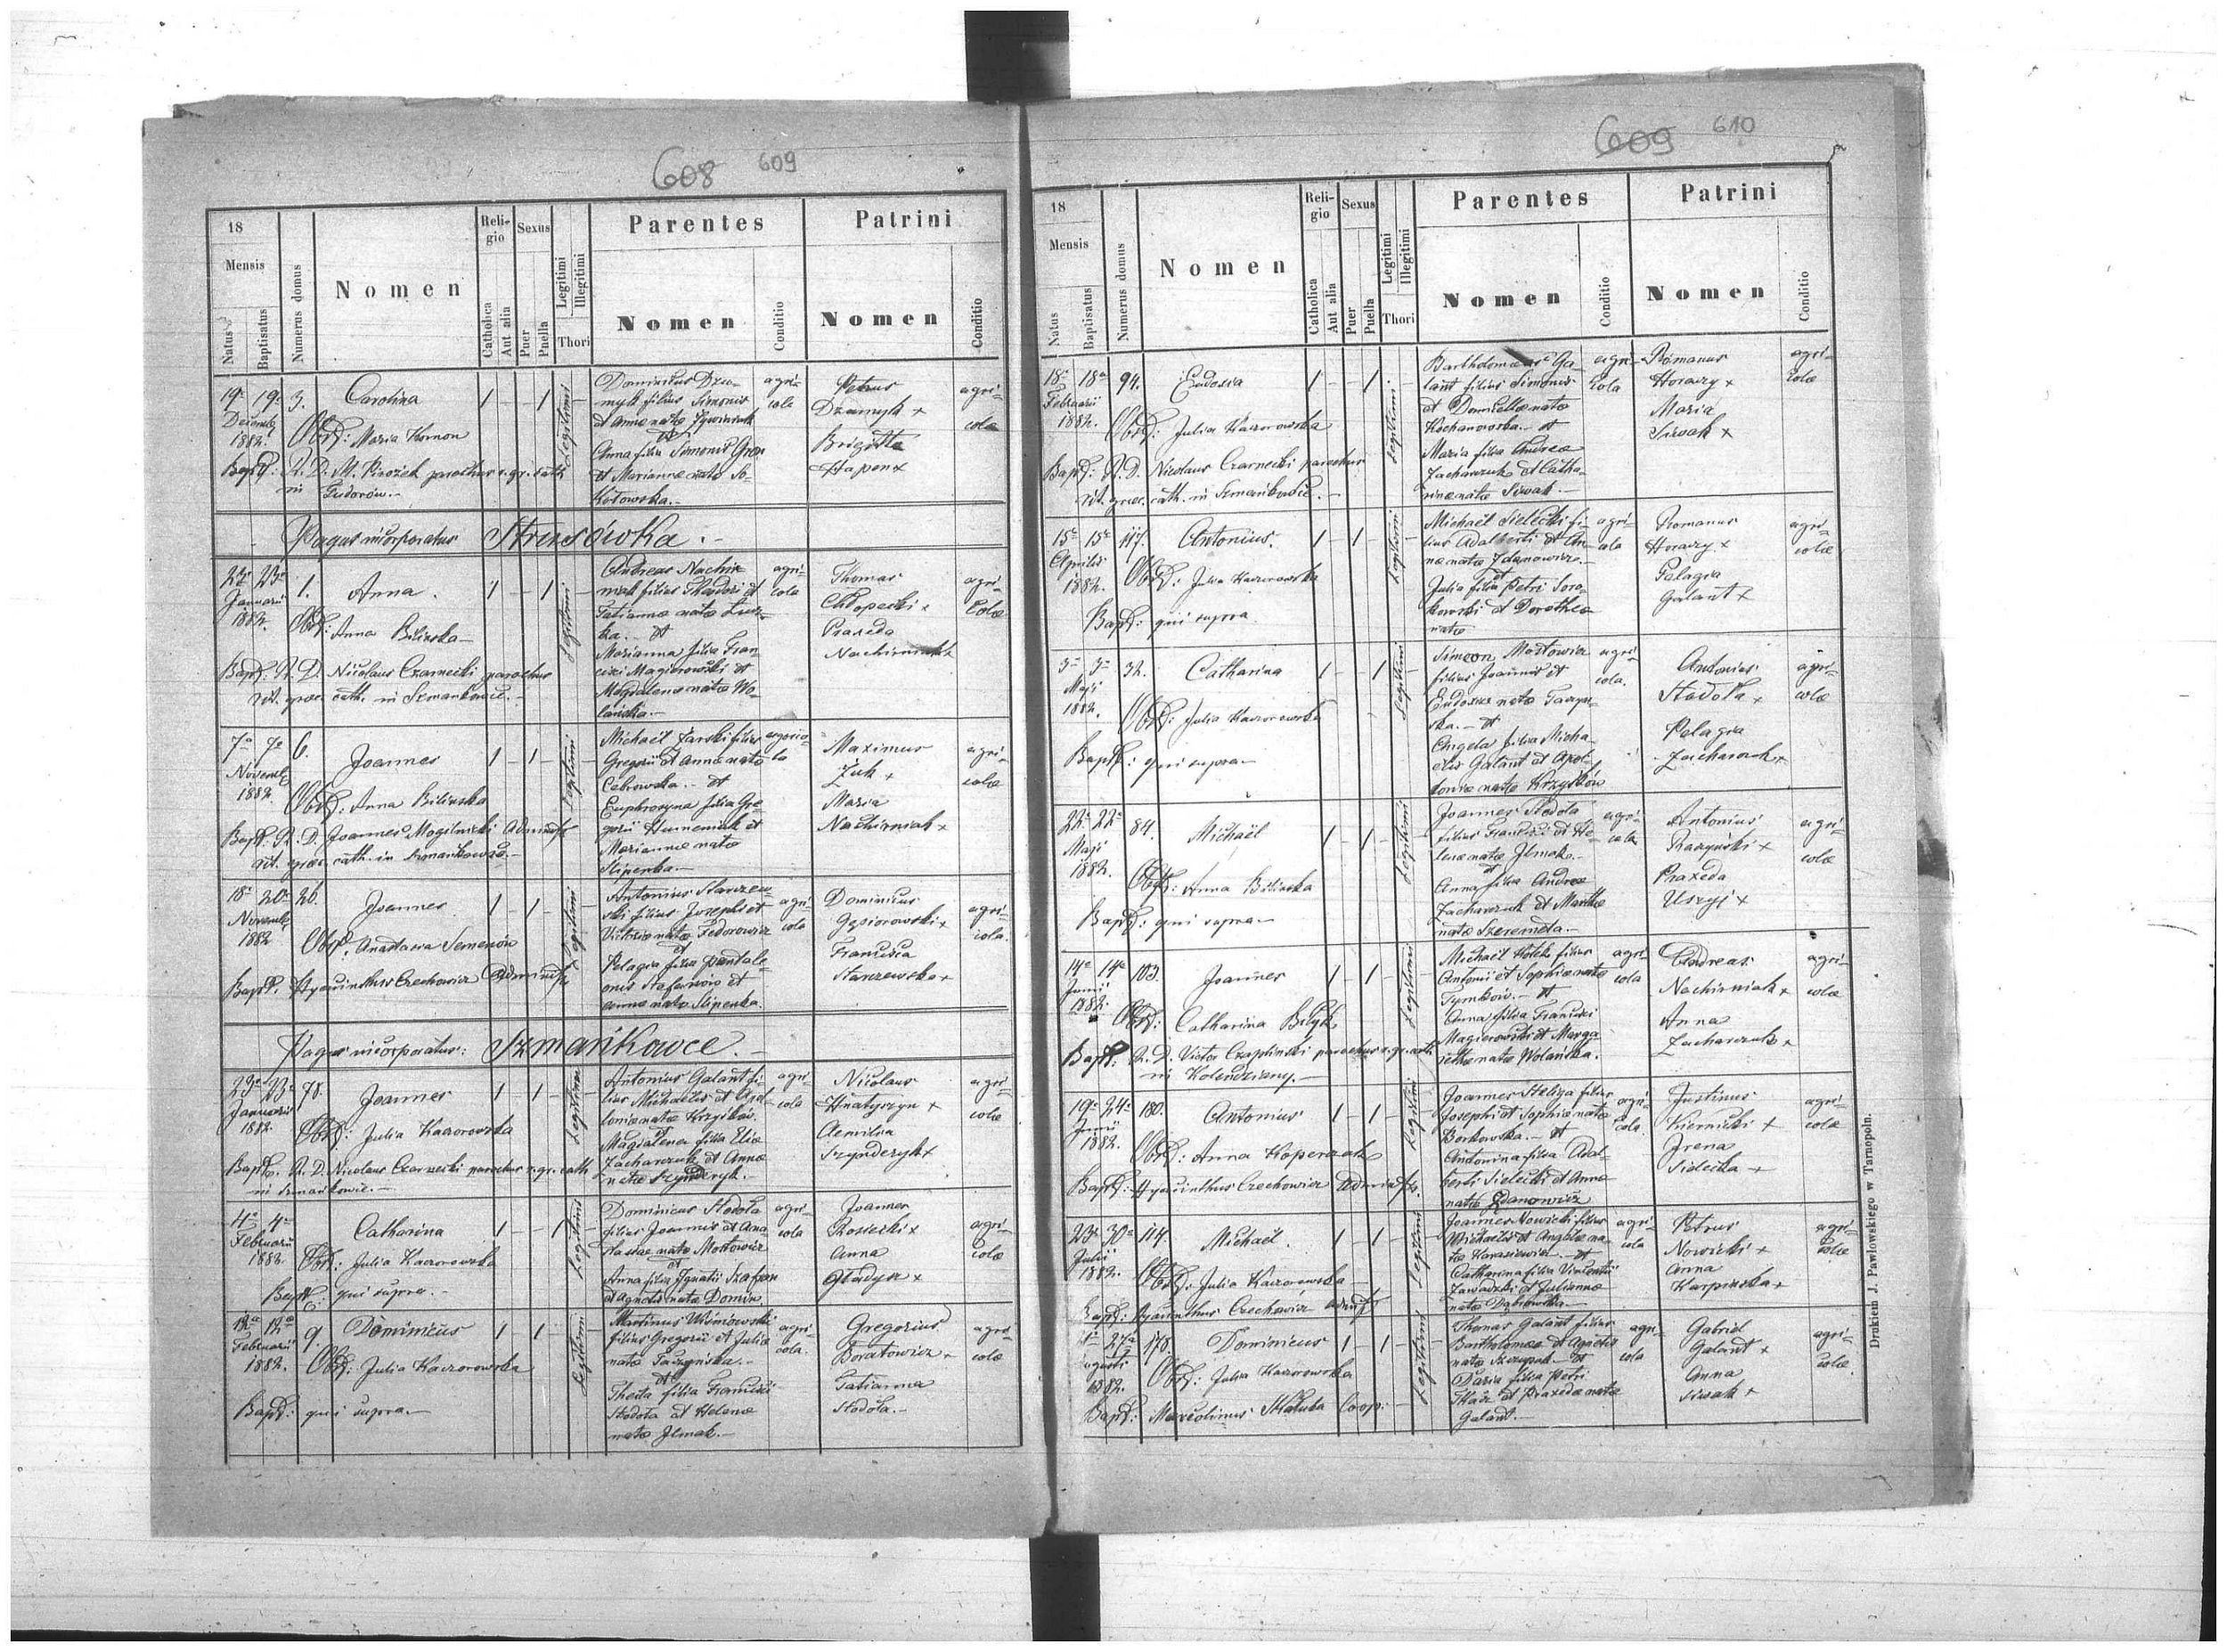 608 609
18
Mensis
Natus
Baptisatus
Numerus domus
Nomen
Religio
Catholica
Aut alia
Sexus
Puer
Puella
Legitimi
Illegitimi
Thori
Parentes
Nomen
Conditio
Patrini
Nomen
Conditio
19a 19a 3. Carolina 1 – – 1
Decemb
1882.
Obst: Maria Komon
Bapt: R. D. M. parochus r. gr. cath
in Tudorów.
Legitimi
Dominicus Dzu-
myk filius Simonis
et Annæ natæ
et
Anna filia Simonis
et Mariannæ natæ So-
kołowska.
agri-
cola
Petrus
Dzumyk +
Brigitta
Hapon +
agri-
colæ
Pagus incorporatus Strusówka.
23a 23a 1. Anna. 1 – – 1
Januarii
1882.
Obst: Anna Bilińska
Bapt. R. D. Nicolaus Czarnecki parochus
rit. græc. cath. in Szmańkowce.
Legitimi
Andreas Nachir-
niak filius Theodori et
Tatiannæ natæ
ka. et
Marianna filia Fran-
cisci Magierowski et
Magdalenæ natæ Wo-
lańska.
agri-
cola
Thomas
Chłopecki +
Praxeda
Nachirniak +
agri-
colæ
7a 7a 6. Joannes 1 – 1 –
Novemb
1882
Obst: Anna Bilińska
Bapt. R. D. Joannes Mogilnicki Administr
rit. græc. cath. in Szmańkowce.
Legitimi
Michaël Jarski filius
Gregorii et Annæ natæ
Cebrowska. et
Euphrosyna filia Gre-
gorii Humeniuk et
Mariannæ natæ
Slipenka.
Maximus
Żuk +
Maria
Nachirniak +
agri-
colæ
18a 20a 26. Joannes 1 – 1 –
Novemb
1882
Obst. Anastasia Semenów
Bapt. Hyacinthus Czechowicz Administr
Legitimi
Antonius Starzew-
ski filius Josephi et
Victoriæ natæ Fedorowicz
et
Pelagia filia Pantale-
onis Stefaniów et
Annæ natæ Slipenka.
agri-
cola
Dominicus
Gęsiorowski +
Francisca
Starzewska +
agri-
colæ.
Pagus incorporatus: Szmańkowce.
23a 23a 78. Joannes 1 – 1 –
Januarii
1882.
Obst: Julia Kaczorowska
Bapt. R. D. Nicolaus Czarnecki parochus r. gr. cath
in Szmańkowce.
Legitimi
Antonius Galant fi-
lius Michaelis et Apol-
loniæ natæ Krzyśków
Magdalena filia Eliæ
Zacharczuk et Annæ
natæ Szynderyk.
agri-
cola
Nicolaus
Hnatyszyn +
Aemilia
Szynderyk +
agri-
colæ
4a 4a Catharina 1 – – 1
Februarii
1882.
Obst: Julia Kaczorowska
Bapt: qui supra.
Legitimi
Dominicus Stodoła
filius Joannis et Ana-
stasiæ natæ Mostowicz
et
Anna filia Ignatii Szafran
et Agnetis natæ Domin
agri-
cola
Joannes
Rosiecki +
Anna
Gładysz +
agri-
colæ
12a 12a 9. Dominicus 1 – 1 –
Februarii
1882.
Obst: Julia Kaczorowska
Bapt: qui supra.
Legitimi
Martinus Wiśniowski
filius Gregorii et Juliæ
natæ Paczyńska.
et
Thecla filia Francisci
Stodoła et Helenæ
natæ Jlmak.
agri-
cola.
Gregorius
Boratowicz
Tatianna
Stodoła.
agri-
colæ
609 610
18
Mensis
Natus
Baptisatus
Numerus domus
Nomen
Religio
Catholica
Aut alia
Sexus
Puer
Puella
Legitimi
Illegitimi
Thori
Parentes
Nomen
Conditio
Patrini
Nomen
Conditio
18a 18a 94. Eudoxia 1 – – 1
Februarii
1882.
Obst: Julia Kaczorowska
Bapt: R. D. Nicolaus Czarnecki parochus
rit. græc. cath. in Szmańkowce.
Legitimi
Bartholomæus Ga-
lant filius Simonis
et Domicellæ natæ
Kochanowska. et
Maria filia Andreæ
Zacharczuk et Catha-
rinæ natæ Siwak.
agri-
cola
Romanus
Horacy +
Maria
Siwak +
agri-
colæ
15a 15a 117. Antonius. 1 – 1 –
Aprilis
1882.
Obst: Julia Kaczorowska
Bapt: qui supra
Legitimi
Michaël Sielecki fi-
lius Adalberti et An-
næ natæ Zdanowicz.
et
Julia filia Petri Soro-
kowski et Dorotheæ
natæ
agri-
cola
Romanus
Horacy +
Pelagia
Galant +
agri-
colæ
3a 3a 32. Catharina 1 – – 1
Maji
1882.
Obst: Julia Kaczorowska
Bapt: qui supra
Legitimi
Simeon Mostowicz
filius Joannis et
Eudoxiæ natæ
ska. et
Angela filia Micha-
elis Galant et Apol-
loniæ natæ Krzyśków
agri-
cola.
Antonius
Stodoła +
Pelagia
Zacharczuk +
agri-
colæ
22a 22a 84. Michaël 1 – 1 –
Maji
1882.
Obst: Anna Bilińska
Bapt: qui supra
Legitimi
Joannes Stodoła
filius Francisci et He-
lenæ natæ Jlmak.
et
Anna filia Andreæ
Zacharczuk et Marthæ
natæ Szeremeta.
agri-
cola
Antonius
Raczyński +
Praxeda
Uszyj +
agri-
colæ
14a 14a 103. Joannes 1 – 1 –
Junii
1882.
Obst: Catharina Biłyk
Bapt: R. D. Victor Czapliński parochus r. gr. cath
in Kolendziany.
Legitimi
Michaël Hołek filius
Antonii et Sophiæ natæ
Tymków. et
Anna filia Francisci
Magierowski et Marga-
rethæ natæ Wolańska.
agri-
cola
Andreas
Nachirniak +
Anna
Zacharczuk +
agri-
colæ
19a 24a 180. Antonius 1 – 1 –
Junii
1882.
Obst: Anna Koperczak
Bapt: Hyacinthus Czechowicz Administr.
Legitimi
Joannes Steliga filius
Josephi et Sophiæ natæ
Borkowska. et
Antonina filia Adal-
berti Sielecki et Annæ
natæ Zdanowicz
agri-
cola.
Justinus
Kiernicki +
Irena
Sielecka +
agri-
colæ
23a 30a 114. Michaël 1 – 1 –
Julii
1882.
Obst: Julia Kaczorowska
Bapt: Hyacinthus Czechowicz Admstr
Legitimi
Joannes Nowicki filius
Michaelis et Angelæ na-
tæ Karasiewicz. et
Catharina filia Vincentii
Zawadzki et Juliannæ
natæ Dąbrowska.
agri-
cola
Petrus
Nowicki +
Anna
Karpińska +
agri-
colæ
178. Dominicus 1 – 1 –
Augusti
1882.
Obst: Julia Kaczorowska
Bapt: Marcolinus Skałuba Coop.
Legitimi
Thomas Galant filius
Bartholomæi et Agnetis
natæ Szczepak. et
Daria filia Petri
Tkacz et Praxedæ natæ
Galant.
agri-
cola
Gabriel
Galant +
Anna
Siwak +
agri-
colæ
Drukiem J. Pawłowskiego w Tarnopolu.